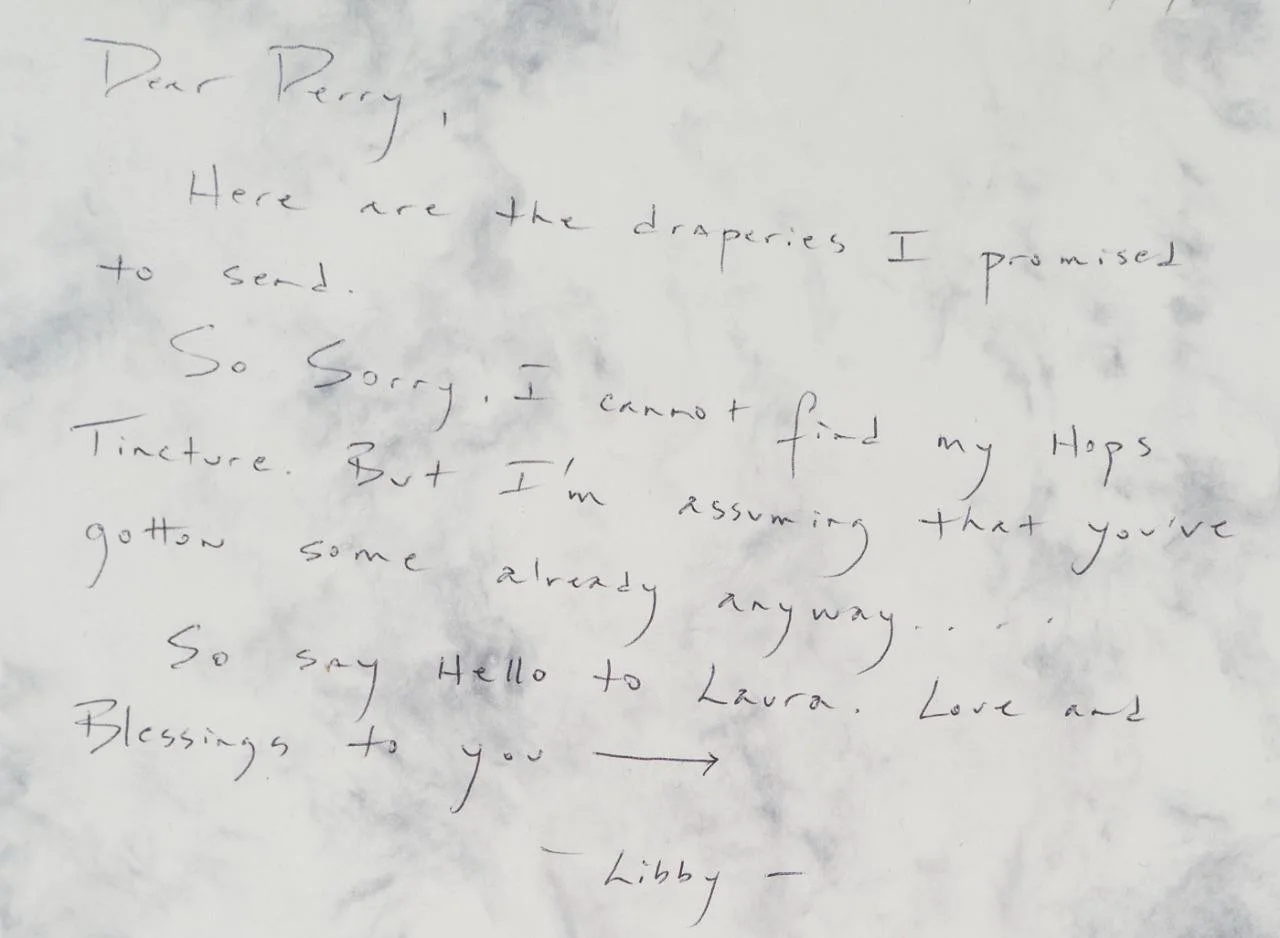 Dear Perry,
Here are the draperies I promised
to send.
So Sorry. I cannot find my Hops
Tincture. But I'm assuming that you've
gotton some already anyway.....
So say Hello to Laura. Love and
Blessings to you →
- Libby -